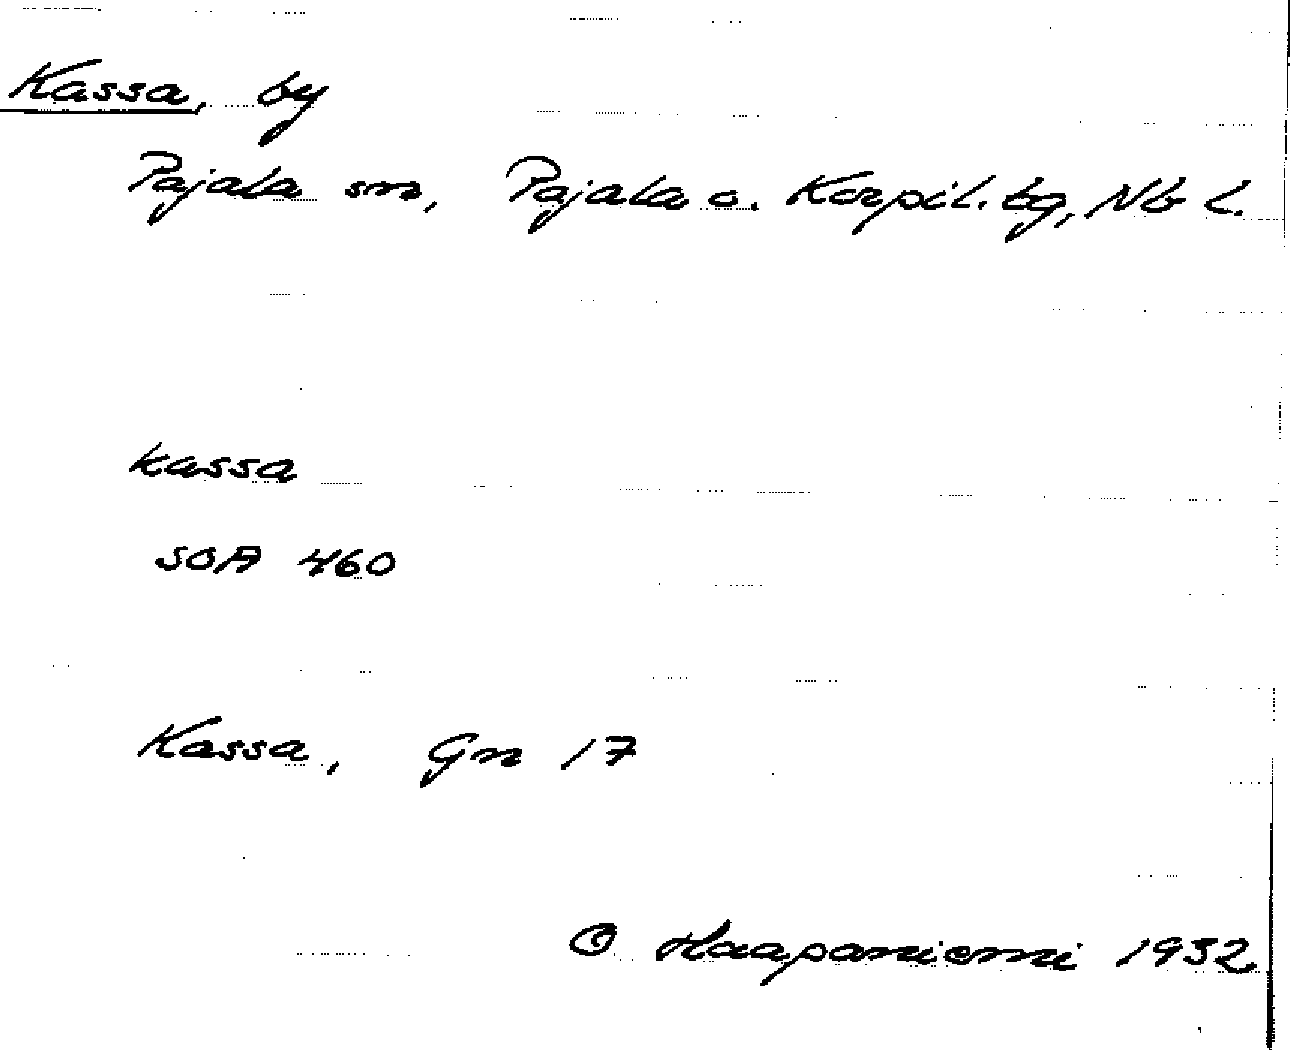 Kassa, by
Pajala sn, Pajala o. Korpil. tg, Nb l.
kassa
SOA 460
Kassa, Gn 17
O Haapaniemi 1932